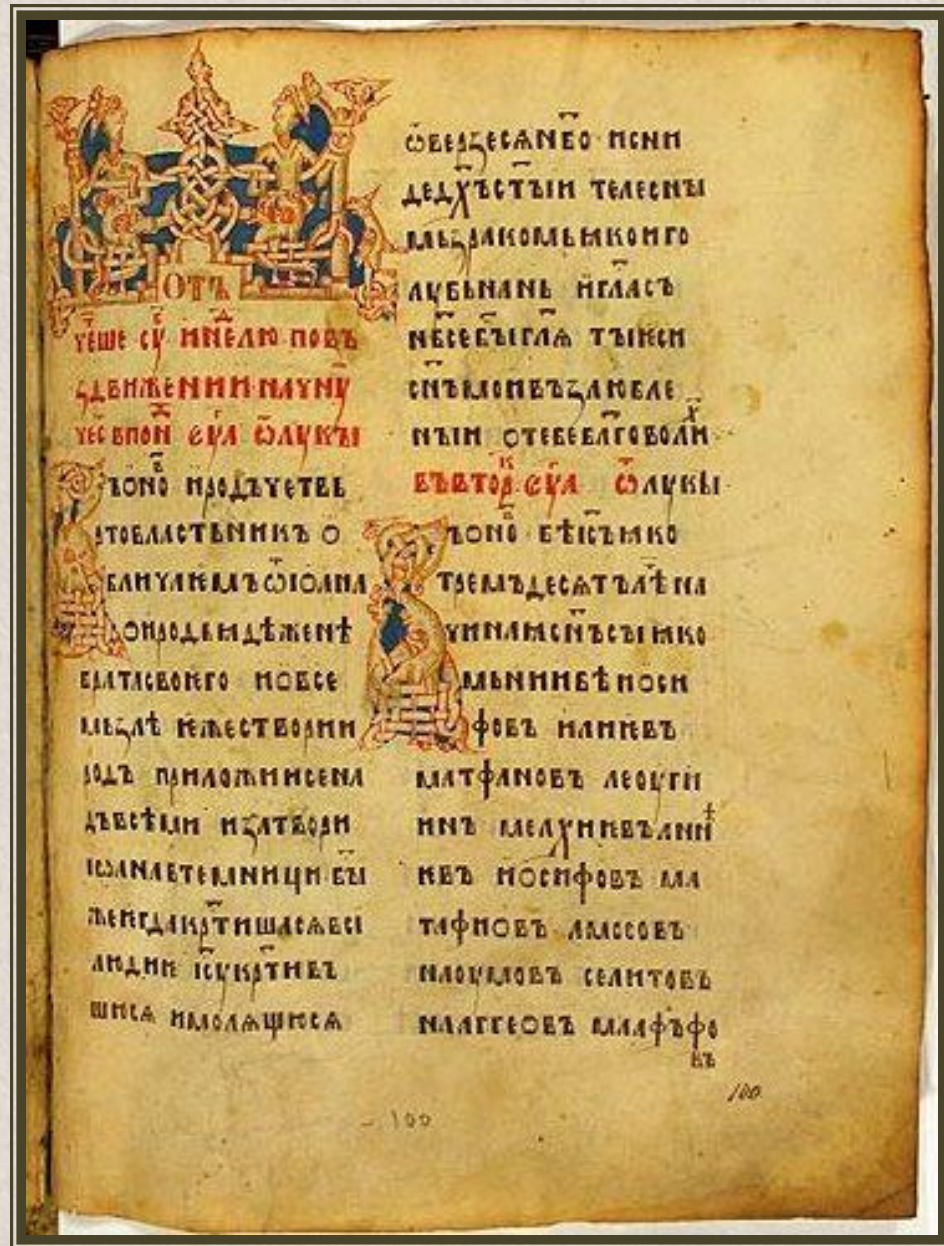 ОТЪ
чт҃еше су҃ и нед҃лю повъ
здвижении науну
чес̑ в пон҃ еу҃а ѿ лукы
въоно҃ иродъ четвь
ртовластьникъ о
бличакмъ ѿ иоана
о иродьидѣ женѣ
брата своѥго и о все
мь злѣ ѥже створи и
родъ приложи и се на
дъ всѣми и затвори
иѡана в темници бы҃
же ѥгда крт҃ишасѧ вси
людиѥ ису҃ крт҃ивъ
шюсѧ и молѧщюсѧ
ѿверзесѧ нб҃о и сни
де дх҃ъ ст҃ыи телесны
мь зракомь ꙗко и го
лубь на нь и гла҃съ
нб҃се бы҃ гл҃ѧ ты ѥси
сн҃ъ мои възлюбле
ныи о тебе блг҃оволих҃
въ втор҃ еу҃а ѿ лукы
въоно҃ бѣ ис҃ъ ꙗко
тремъ десѧтъ лѣ҃ на
чинаꙗ сн҃ъ сы ꙗко
мьнии бѣ иоси
фовъ илиѥвъ
матфановъ леоуги
инъ мелхиѥвъ анни
ѥвъ иосифовъ ма
тафиовъ амосовъ
наоумовъ селитовъ
нааггеовъ маафъфо
въ
100
100